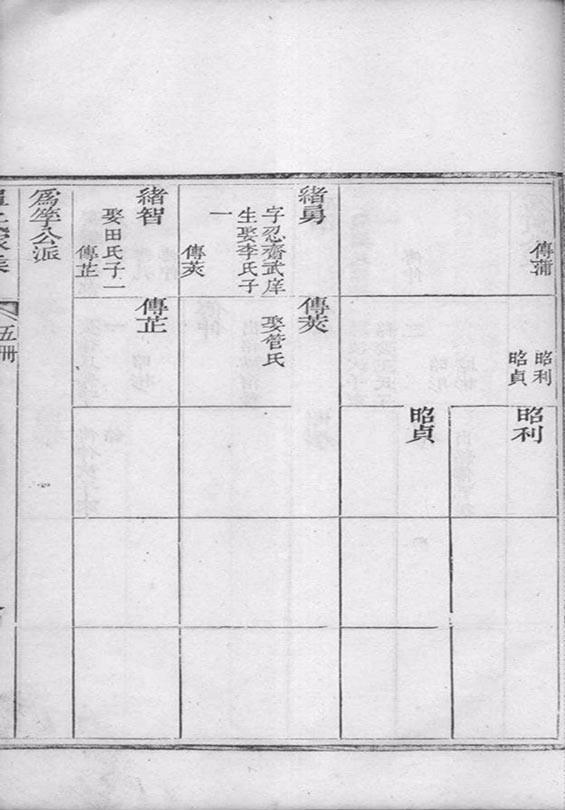 傳蒲
昭利
昭貞
昭利
昭貞
緒勇
字忍齋武庠
生娶李氏子
一
傳荚
傳荚
娶菅氏
緒智
娶田氏子一
傳芷
傳芷
為等公派
五冊